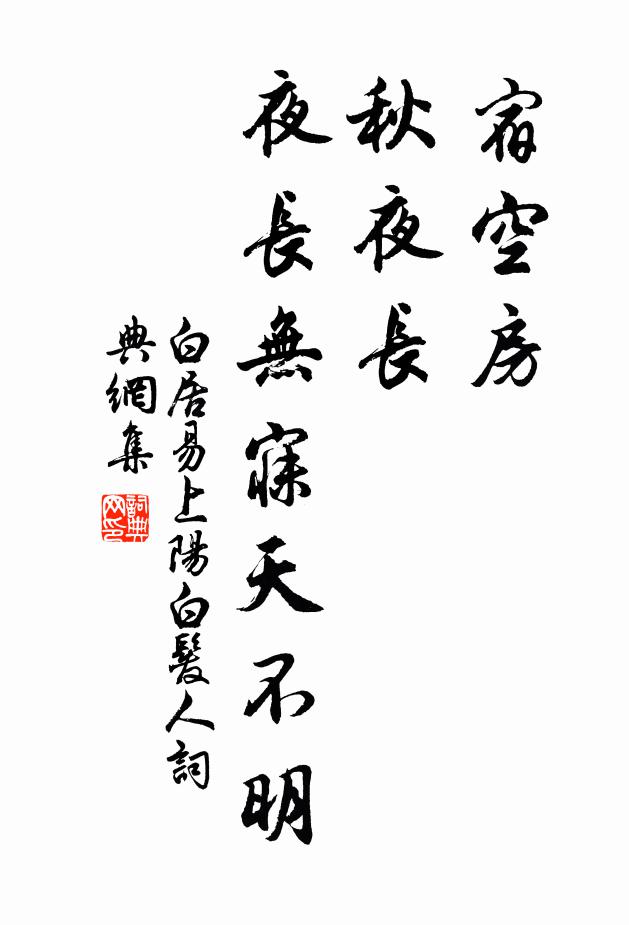 宿空房
秋夜長
夜長無寐天不明
白居易上陽白髮人詞
典網集
詞典
网印